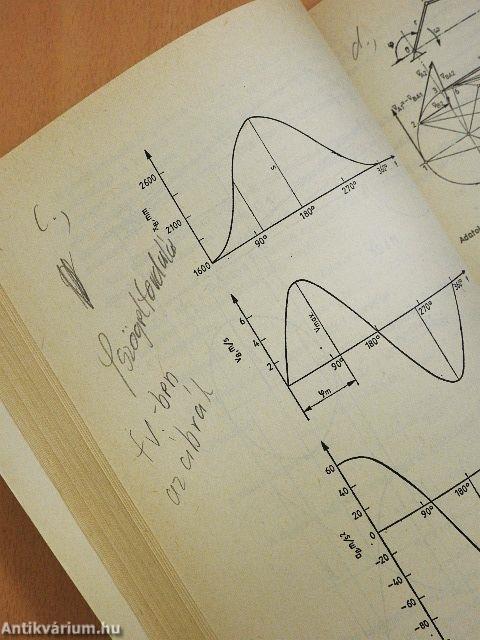 c.,
Szögelfordulás
fv.-ben
az ábrák
2600
2100
1600
x_B, mm
s
90°
180°
270°
360°
t
6
4
2
v_B m/s
v_max
90°
180°
270°
360°
t
φm
60
40
20
0
-20
-40
-60
-80
a_B m/s²
90°
180°
d.,
2
3
Adatok
Antikvárium.hu